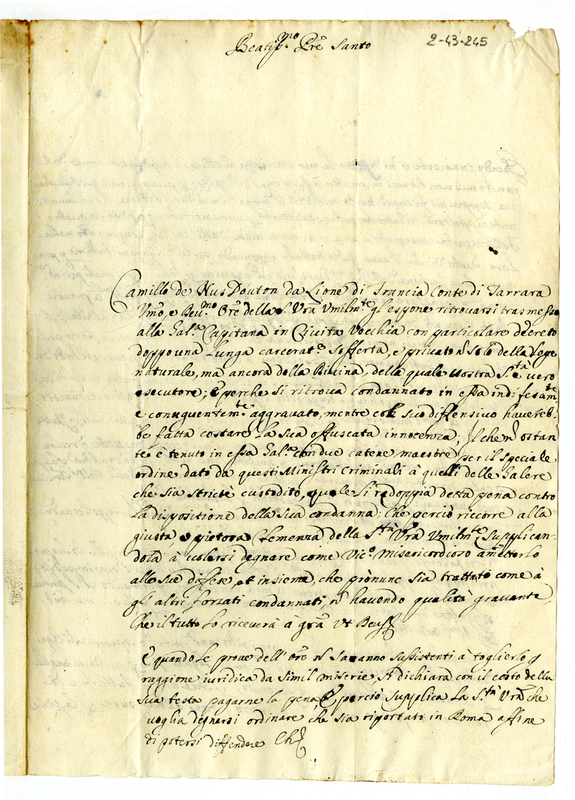 2-43-245
Beatiss.mo Pre Santo
Camillo de Nus Douton da Lione di Francia Conte di Tarrara
Umo, e Deu.mo Ore della S. Vra Umilm.te gl'espone ritrovarsi trasmesso
alla Gal.a Capitana in Civita Vecchia con particolare decreto
doppo una lunga carcerat.e sofferta, e privato n solo della legge
naturale, ma ancora della Divina, della quale Vostra S.tà è vero
esecutore; E perche si ritrova condannato in essa indifesam.te
e consequentem.te aggravato, mentre col suo diffensivo havereb-
be fatta costare la sua offuscata innocenza; Il che n ostan-
te è tenuto in essa Gal.a con due catene maestre per il speciale
ordine dato da questi Ministri Criminali à quelli delle Galere
che sia stricte custodito, quale si radoppia detta pena contro
la dispositione della sua condanna: Che perciò ricorre alla
giusta e pietosa Clemenza della S.tà Vra Umilm.te supplican-
dola à volersi degnare come Vic.o Misericordioso ametterlo
alle sue difese, et insieme, che pronunc sia trattato come à
gl'altri forzati condannati, n havendo qualità gravante
Che il tutto lo riceverà a gra Ut Deus
E quando le prove dell'Ore n saranno sussistenti à toglierlo p
raggione iuridica da simil miserie, si dichiara con il costo della
sua testa pagarne la pena, E perciò supplica la S.tà Vra che
voglia degnarsi ordinare che sia riportato in Roma affine
di potersi diffendere Che